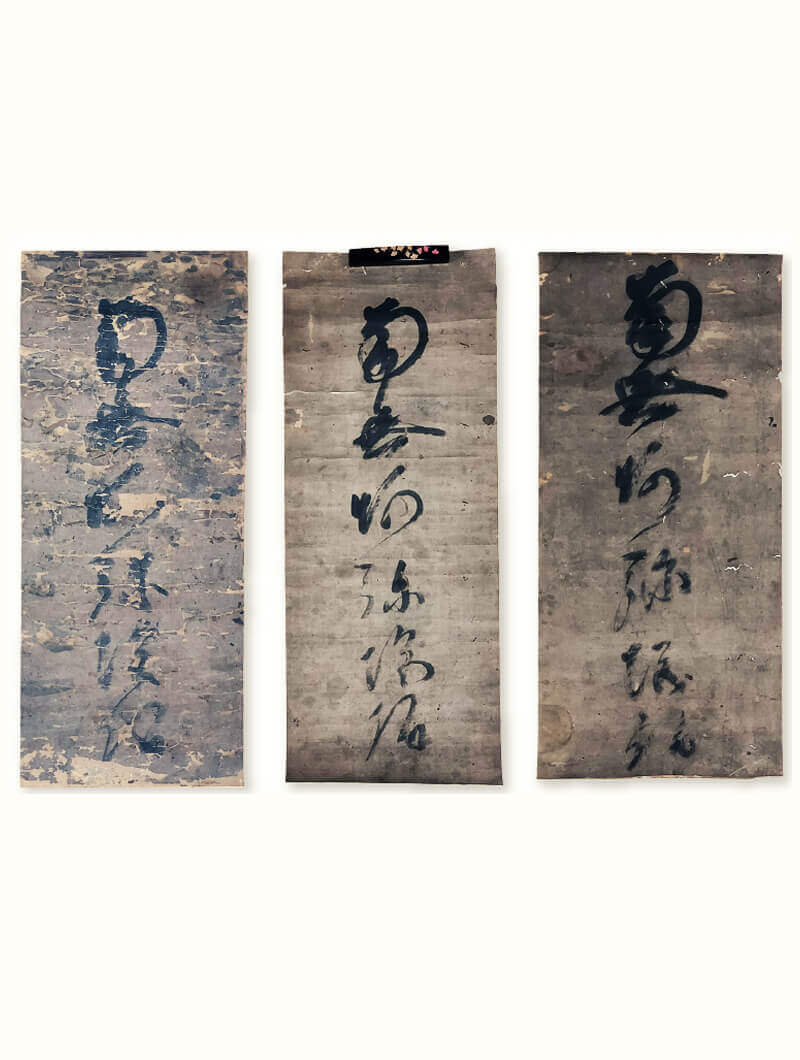 南無阿弥陀佛
南無阿弥陀佛
南無阿弥陀佛